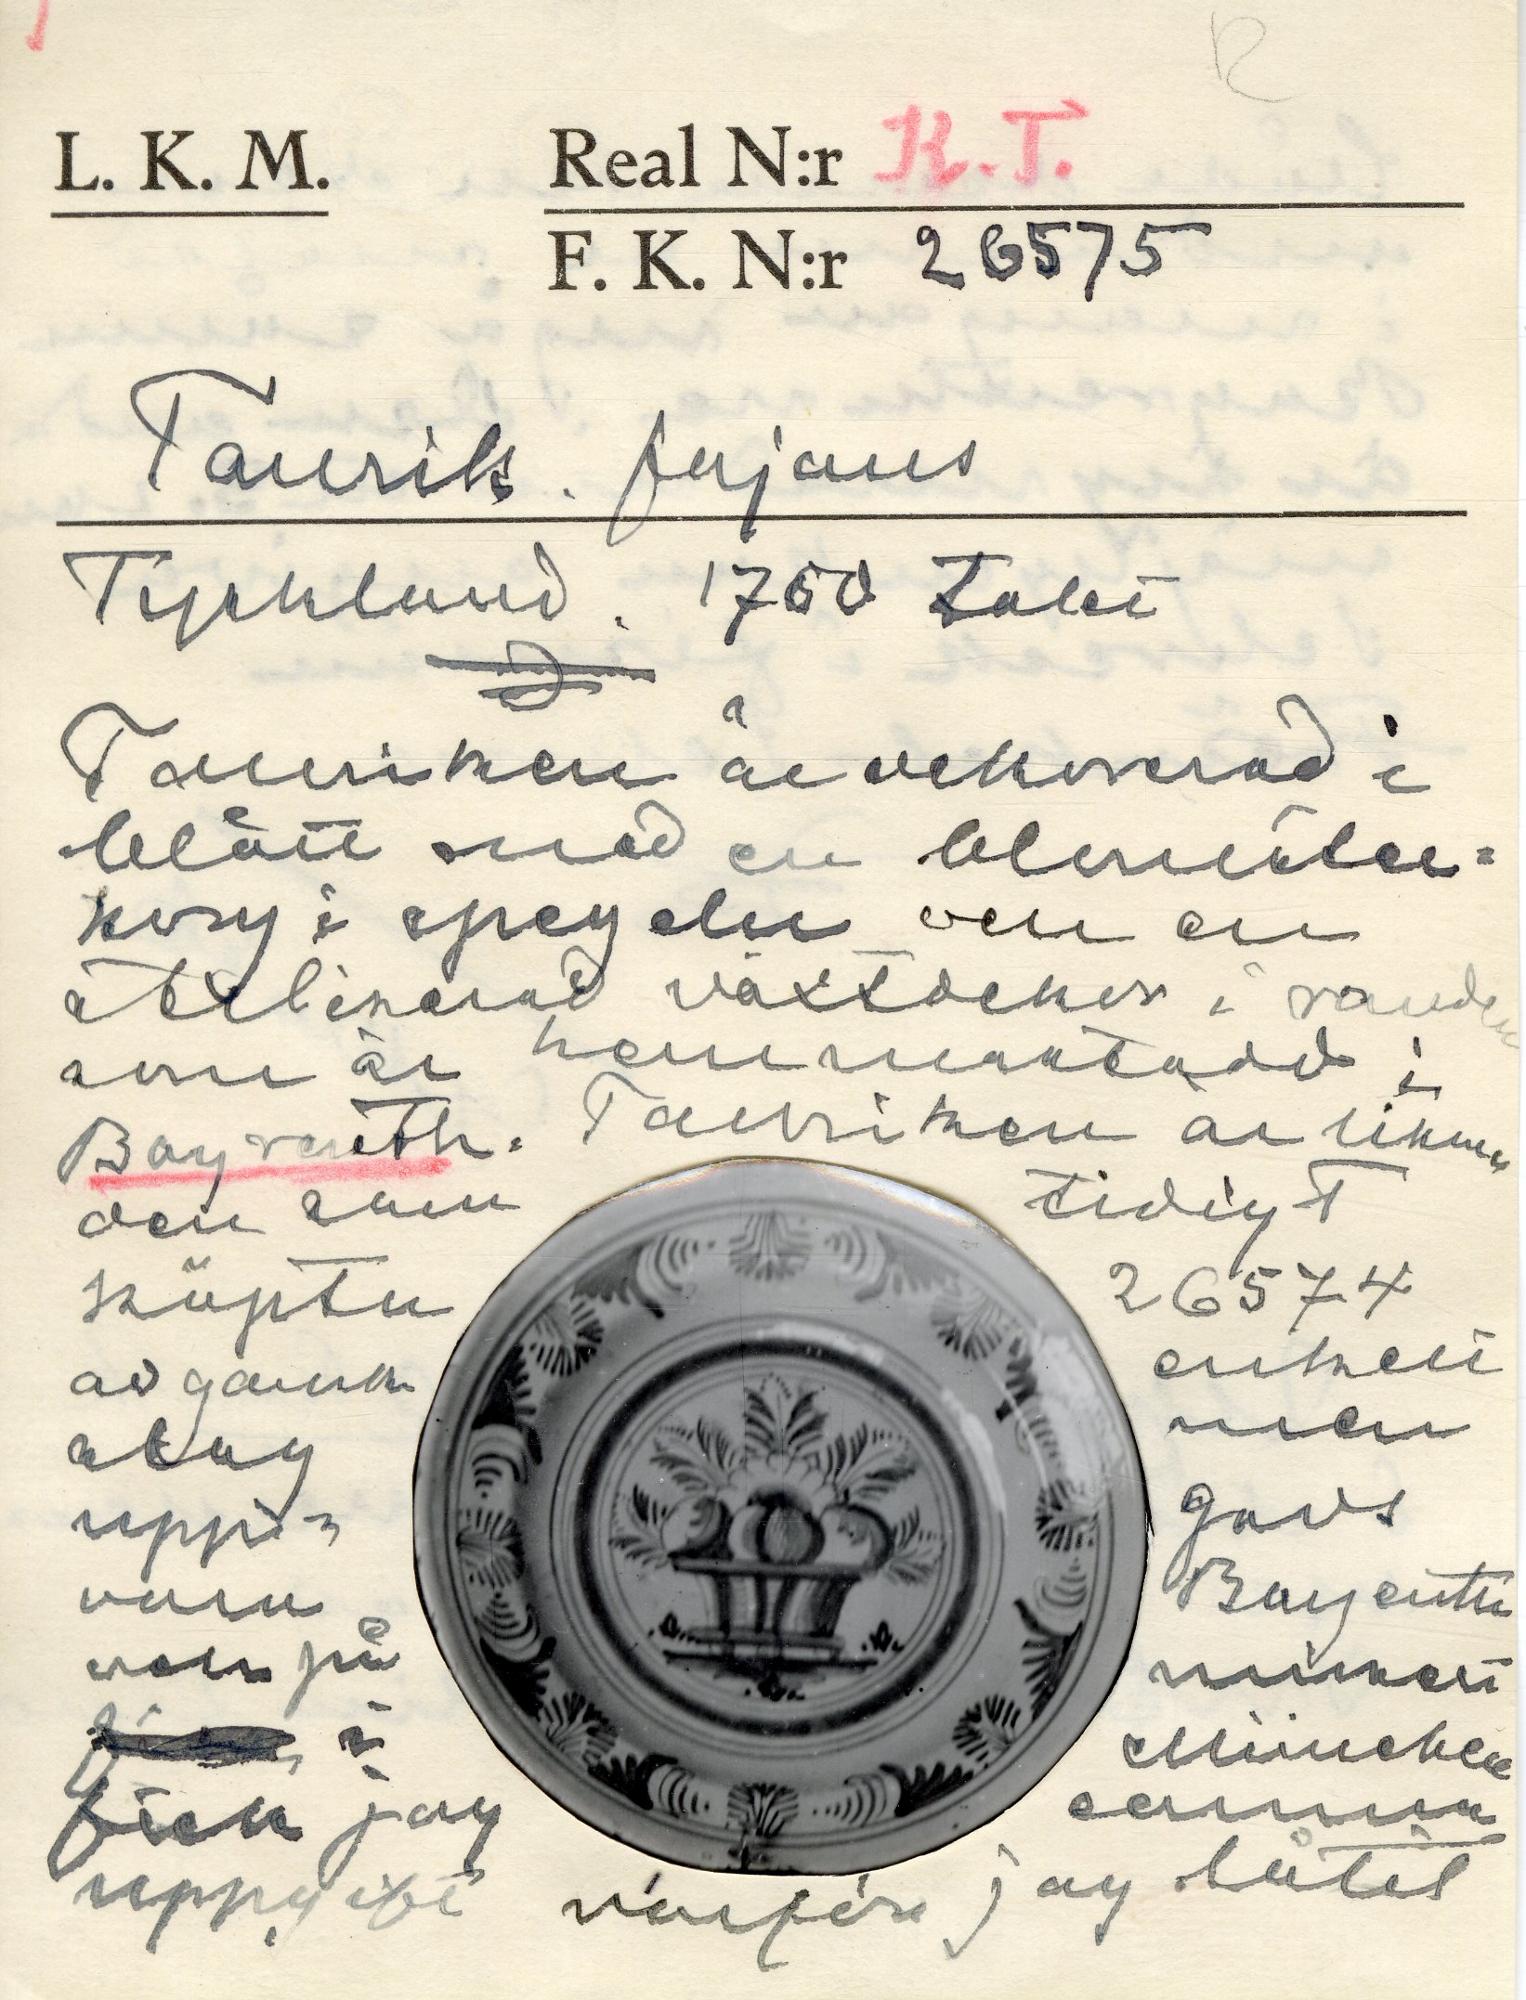 L. K. M.
Real N:r K.T.
F. K. N:r 26575
Tallrik. fajans
Tyskland. 1750 talet
Tallriken är dekorerad i
blått med en blomster=
korg i spegeln och en
stiliserad växtdekor i randen
som är
Bayreuth. Tallriken är likna
den som tidigt
köptes 26574
av gansk enkelt
slag men
uppi= gavs
vara Bayeuth
och på
i München
fick jag samma
uppgift varför jag låtit